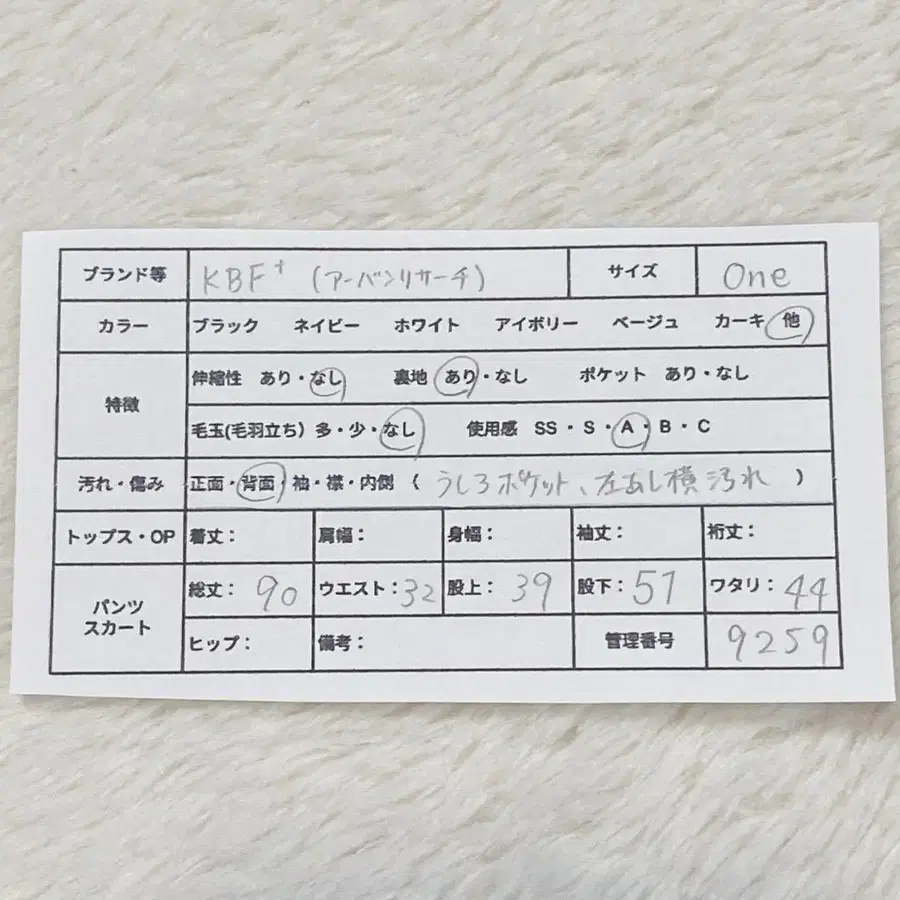 ブランド等 KBF+ (アーバンリサーチ) サイズ One
カラー ブラック ネイビー ホワイト アイボリー ベージュ カーキ 他
特徴 伸縮性 あり・なし 裏地 あり・なし ポケット あり・なし
毛玉(毛羽立ち) 多・少・なし 使用感 SS・S・A・B・C
汚れ・傷み 正面・背面・袖・襟・内側 ( うしろポケット、左あし横汚れ )
トップス・OP 着丈: 肩幅: 身幅: 袖丈: 裄丈:
パンツ スカート 総丈: 90 ウエスト: 32 股上: 39 股下: 57 ワタリ: 44
ヒップ: 備考: 管理番号 9259